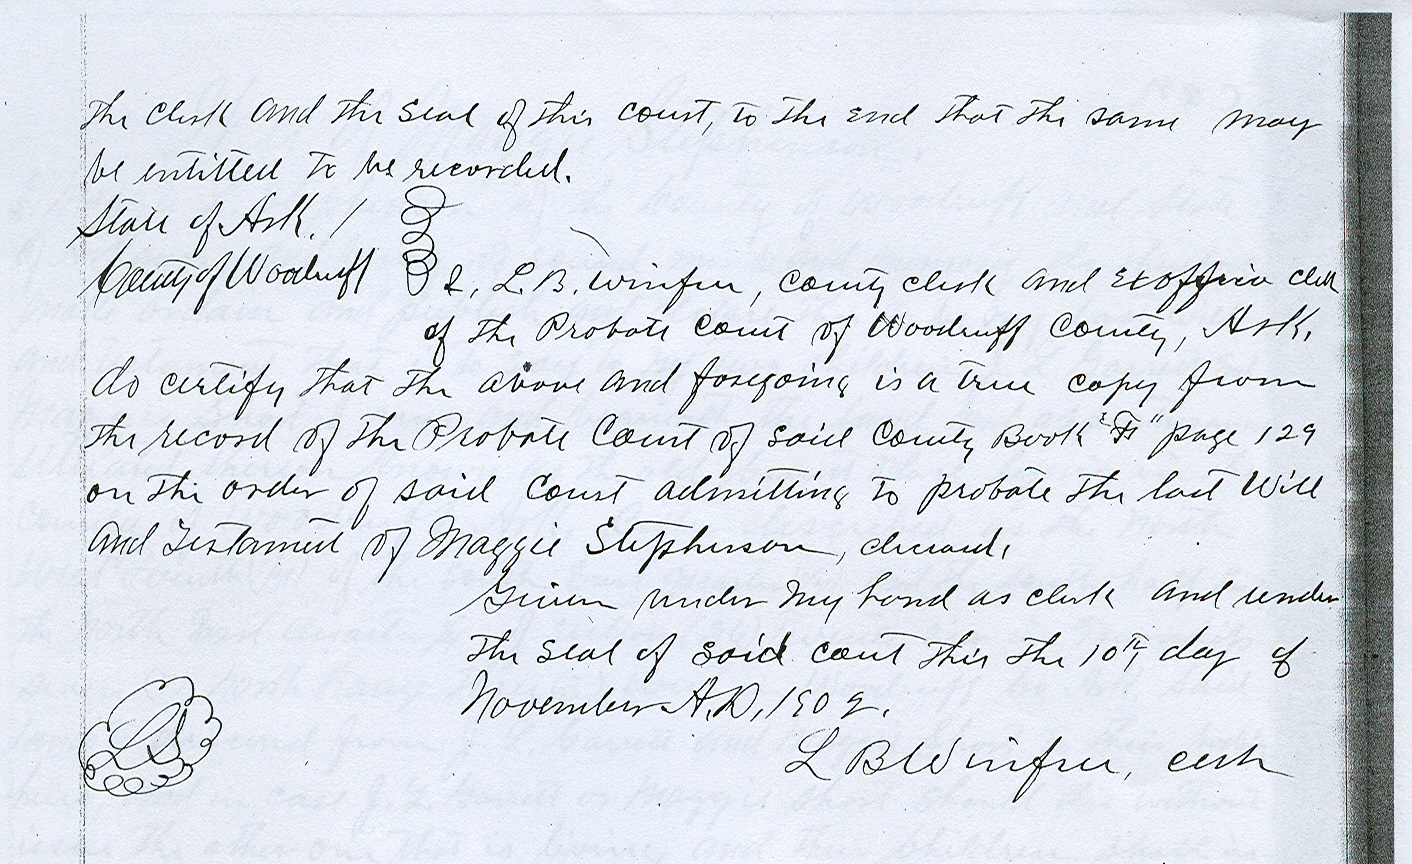 the clerk and the seal of this court, to the end that the same may
be entitled to be recorded.
State of Ark. /
County of Woodruff
I, L.B. Winfree, County clerk and Ex officio clerk
of the Probate Court of Woodruff County, Ark.
do certify that the above and foregoing is a true copy from
the record of the Probate Court of said County Book "F" page 129
on the order of said Court admitting to probate the last Will
and Testament of Maggie Stephenson, deceased.
Given under my hand as clerk and under
the seal of said court this the 10th day of
November A.D. 190
LS
L B Winfree, clerk